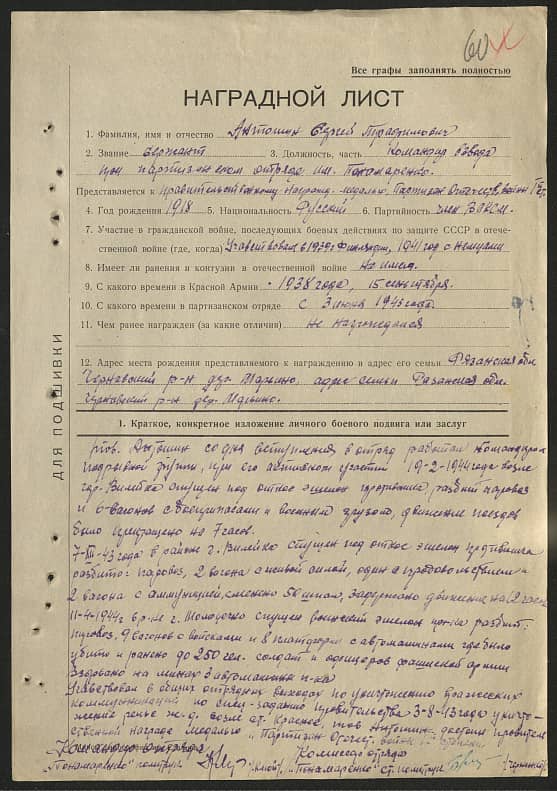 60
Все графы заполнять полностью
НАГРАДНОЙ ЛИСТ
1. Фамилия, имя и отчество Антошин Сергей Трофимович
2. Звание сержант 3. Должность, часть Командир взвода
при партизанском отряде им. Пономаренко.
Представляется к правительственному награде - медалью "Партизан Отечеств. войны"
4. Год рождения 1918 5. Национальность Русский 6. Партийность член ВЛКСМ.
7. Участие в гражданской войне, последующих боевых действиях по защите СССР в отече-
ственной войне (где, когда) Участвовал в 1939г. Финляндии, 1941 год с немцами
8. Имеет ли ранения и контузии в отечественной войне не имел.
9. С какого времени в Красной Армии с 1938 года, 15 сентября.
10. С какого времени в партизанском отряде с 3 июня 1943 года
11. Чем ранее награжден (за какие отличия) не награждался
12. Адрес места рождения представляемого к награждению и адрес его семьи Рязанская обл.
Чернавский р-н дер. Марьино, адрес семьи Рязанская обл.
Чернавский р-н дер. Марьино.
ДЛЯ ПОДШИВКИ
1. Краткое, конкретное изложение личного боевого подвига или заслуг
тов. Антошин со дня вступления в отряд работал командиром
подрывной группы, при его активном участии 19-2-1944 года возле
гор. Вилейка спущен под откос эшелон противника, разбит паровоз
и 6 вагонов с боеприпасами и военным грузом, движение поездов
было прекращено на 7 часов.
7-XII-43 года в районе г. Вилейко спущен под откос эшелон противника
разбито: паровоз, 2 вагона с живой силой, один с продовольствием и
2 вагона с амуницией, сменено 50 шпал, задержано движение на 12 часов
11-4-1944г в р-не г. Молодечно спущен воинский эшелон пр-ка разбит:
паровоз, 9 вагонов с войсками и 8 платформ с автомашинами где было
убито и ранено до 250 чел. солдат и офицеров фашисткой армии
Взорвано на минах 3 автомашины п-ка
Участвовал в общих отрядных выходах по уничтожению вражеских
коммуникаций по спец-заданию правительства 3-8-43 года уничто-
жение рельс ж.д. возле ст. Красное, тов Антошин достоин правитель
ственной награде медалью "Партизан Отечест. войны"
Командир отряда Комиссар отряда
"Пономаренко" политрук "Пономаренко" ст. политрук